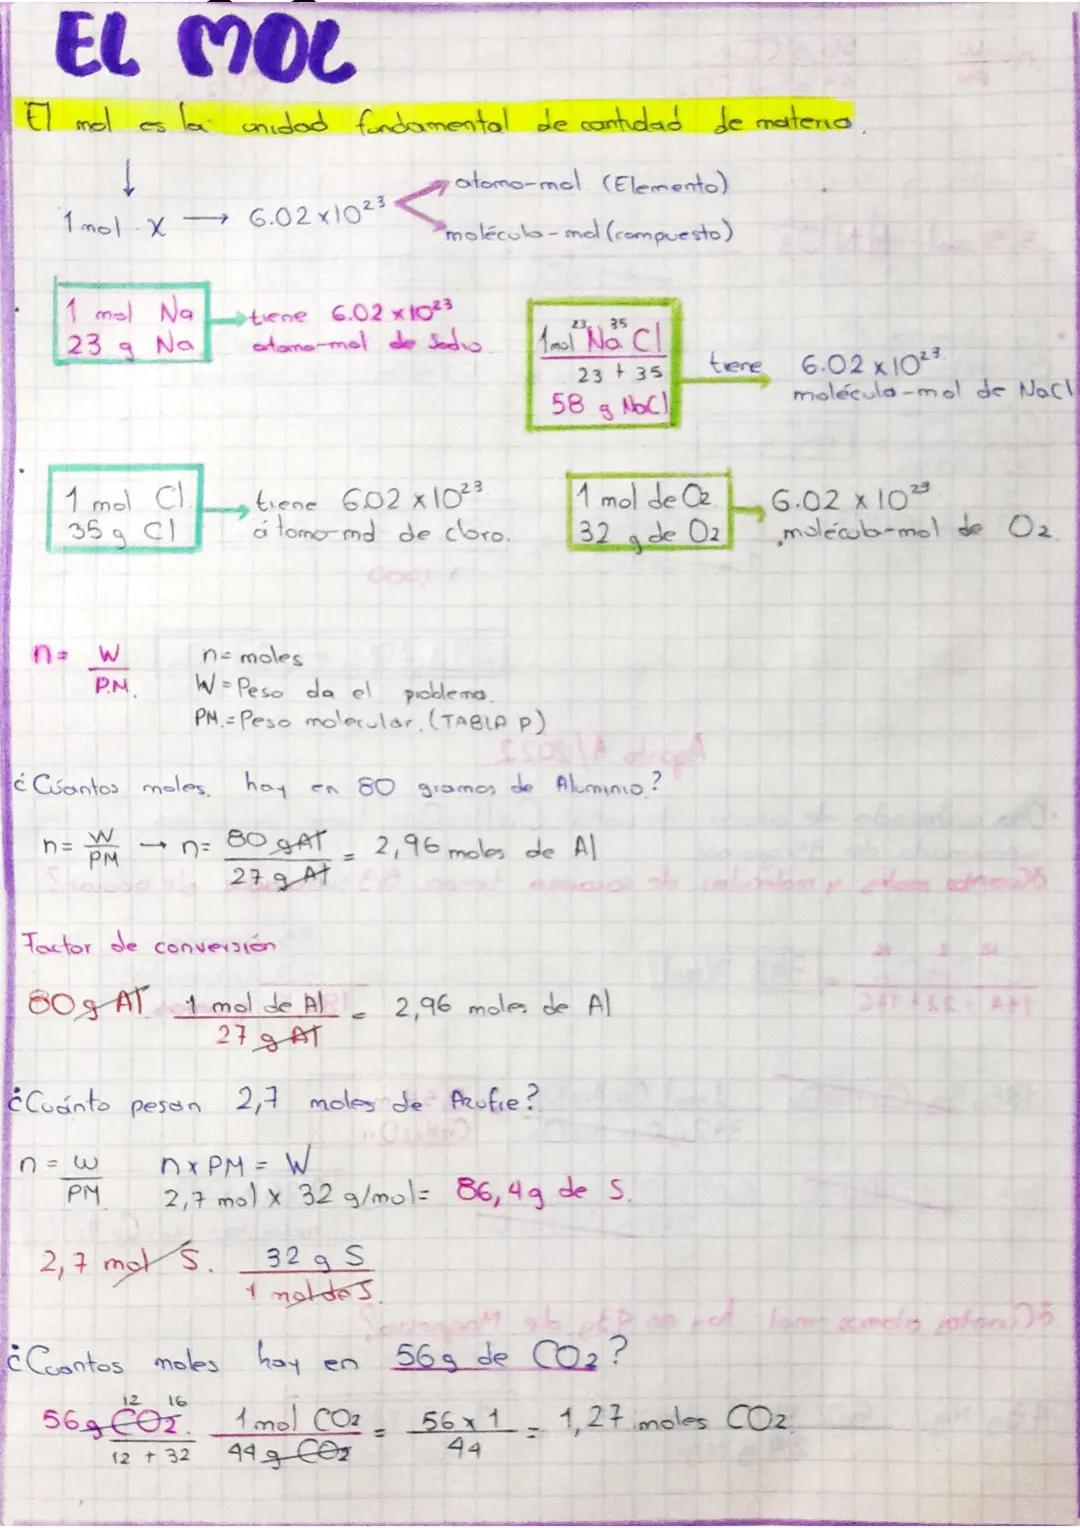 EL MOL
El mol es la unidad fundamental de cantidad de materia.
↓
1 mol X → 6.02 x 10²³
atomo-mol (Elemento)
molécula-mol (compuesto)
1 mol Na
23 g Na
tiene 6.02 x 10²³
atomo-mol de Sodio
23 35
1 mol Na Cl
23 + 35
58 g NaCl
tiene 6.02 x 10²³
molécula-mol de NaCl
1 mol Cl
35 g Cl
tiene 6.02 x 10²³
átomo-mol de cloro.
1 mol de O2
32 g de O2
6.02 x 10²³
molécula-mol de O2
n = W / P.M.
n = moles
W = Peso da el problema.
PM. = Peso molecular. (TABLA P)
¿Cúantos moles. hay en 80 gramos de Aluminio?
n = W / PM → n = 80 g Al / 27 g Al = 2,96 moles de Al
Factor de conversión
80 g Al 1 mol de Al / 27 g Al = 2,96 moles de Al
¿Cuánto pesan 2,7 moles de Azufre?
n = w / PM
n x PM = W
2,7 mol x 32 g/mol = 86,4g de S.
2,7 mol S. 32 g S / 1 mol de S.
¿Cuantos moles hay en 56g de CO2?
12 16
56 g CO2. 1 mol CO2 / 44 g CO2 = 56 x 1 / 44 = 1,27 moles CO2
12 + 32